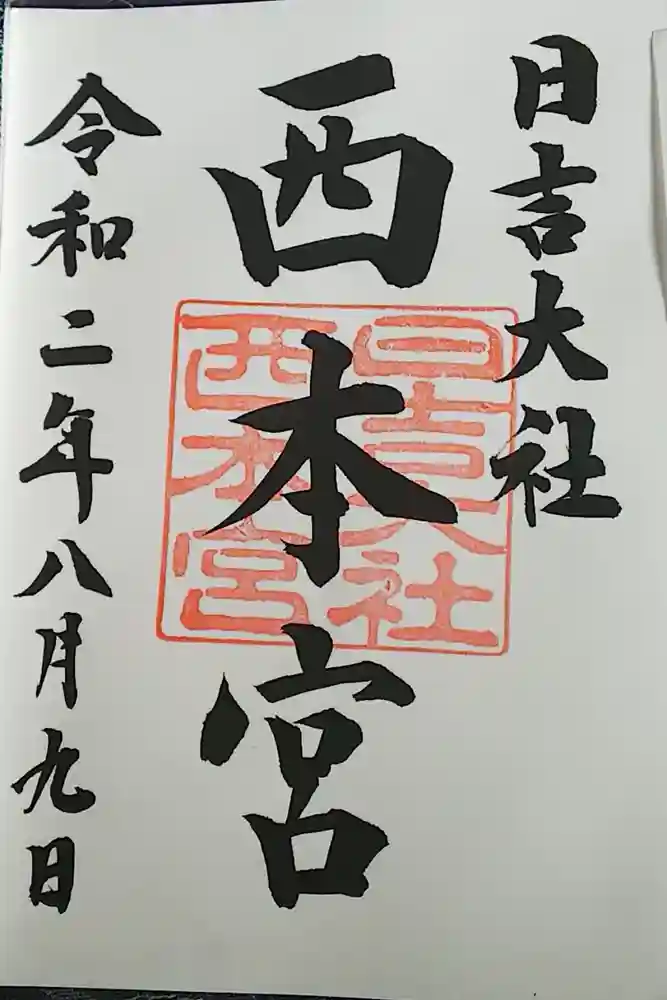 日吉大社
西本宮
日吉大社
西本宮
令和二年八月九日